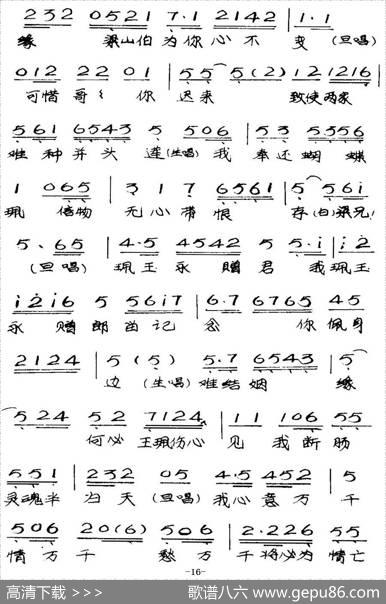 232 0521 7·1 2142 | 1·1
缘 梁山伯为你心不 变 (旦唱)
012 22 01 | 55 5(2) 12 1216 |
可惜哥哥你 迟来 致使两家
561 6543 5 506 | 53 5556
难种并头 莲(生唱)我 奉还蝴蝶
1 065 | 3 1 7 6561 | 5 561
珮 信物 无心带恨 存(白)梁兄!
5、65 | 4·5 4542 5 5·i | i2
(旦唱) 珮玉永赠君 我珮玉
i2i6 5 56i7 | 6·7 6765 45
永赠郎 记 念 你佩身
2124 | 5 (5) 5·7 6543 | 5
边 (生唱)难结姻 缘
524 52 7124 | 11 106 55
何必 玉珮伤心 见 我断肠
551 | 232 05 4·5 452 | 5
灵魂半 当天 (旦唱)我心意万 千
506 20(6) 506 | 2·226 55
情万 千 愁万 千将必为情亡
-16-
高清下载 >>>
歌谱八六 www.gepu86.com